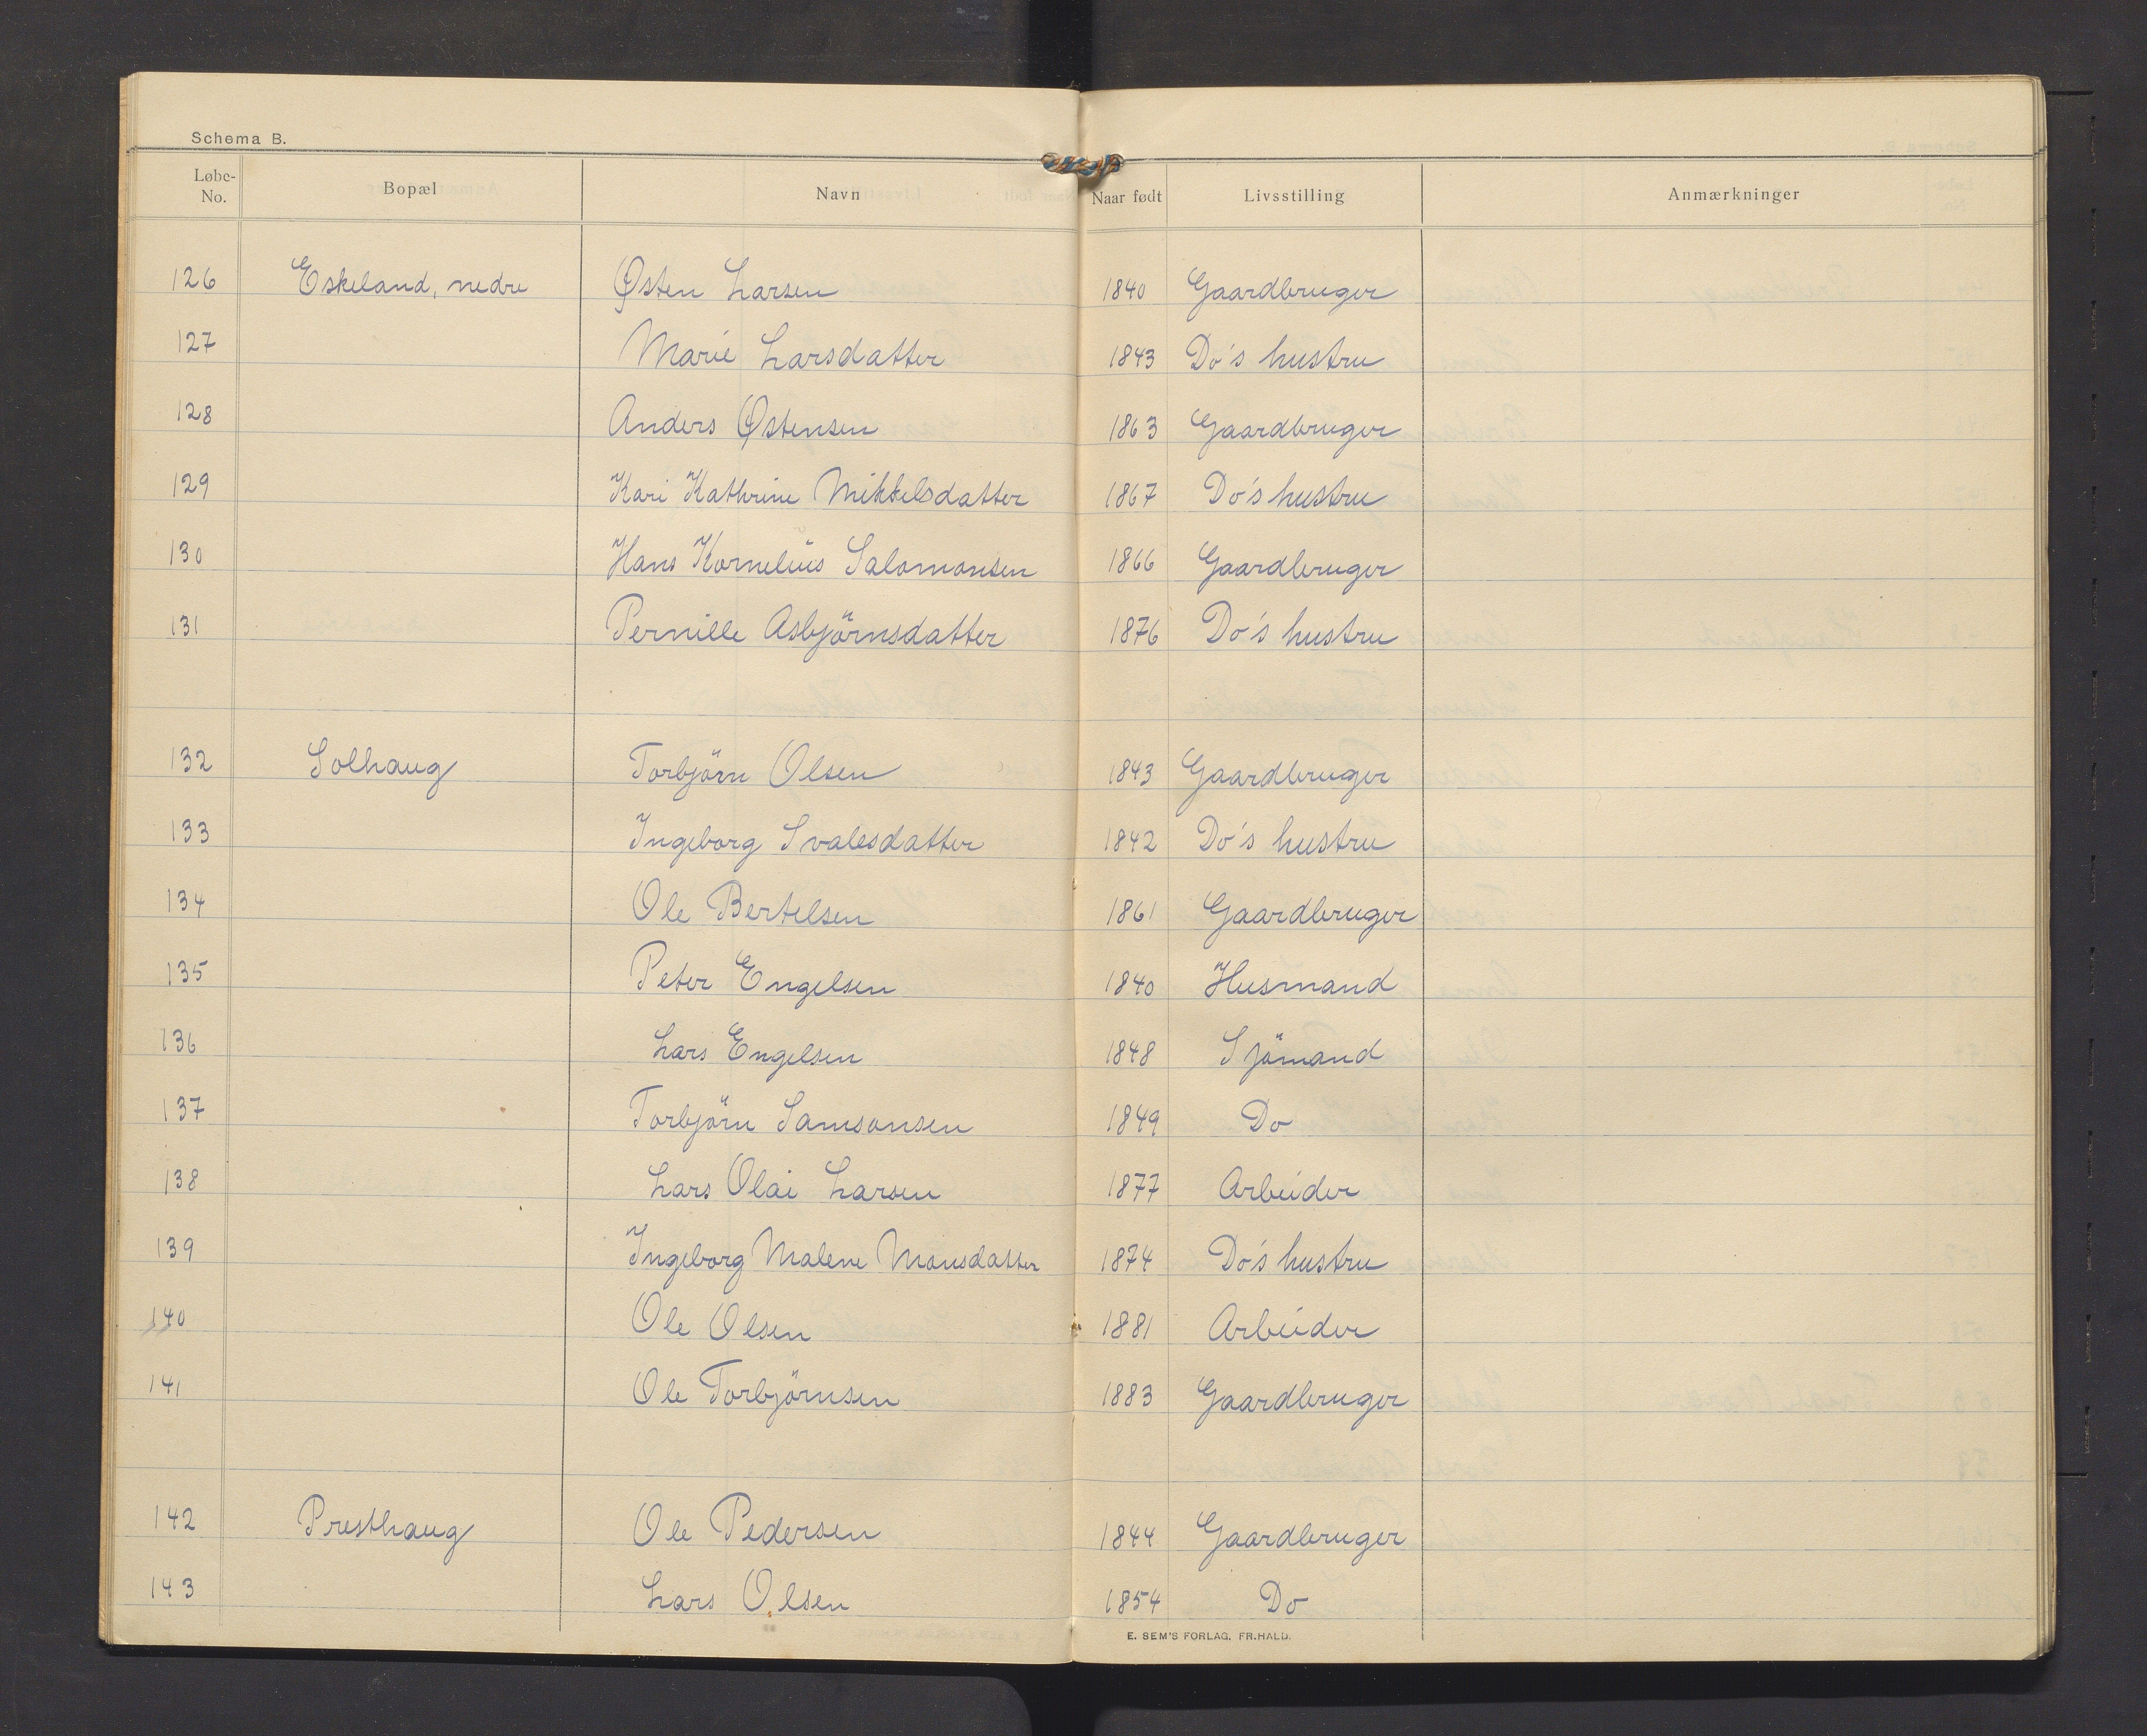 Schema B.
Løbe-No. Bopæl Navn Naar født Livsstilling Anmærkninger
126 Eskeland, nedre Østen Larsen 1840 Gaardbruger
127 Marie Larsdatter 1843 Do's hustru
128 Anders Østensen 1863 Gaardbruger
129 Kari Kathrine Mikkelsdatter 1867 Do's hustru
130 Hans Kornelius Salomonsen 1866 Gaardbruger
131 Pernille Asbjörnsdatter 1876 Do's hustru
132 Solhaug Torbjörn Olsen 1843 Gaardbruger
133 Ingeborg Svalesdatter 1842 Do's hustru
134 Ole Bertelsen 1861 Gaardbruger
135 Peter Engelsen 1840 Husmand
136 Lars Engelsen 1848 Sjömand
137 Torbjörn Samsonsen 1849 Do
138 Lars Olai Larsen 1877 Arbeider
139 Ingeborg Malene Monsdatter 1874 Do's hustru
140 Ole Olsen 1881 Arbeider
141 Ole Torbjörnsen 1883 Gaardbruger
142 Presthaug Ole Pedersen 1844 Gaardbruger
143 Lars Olsen 1854 Do
E. SEM'S FORLAG, FR.HALD.